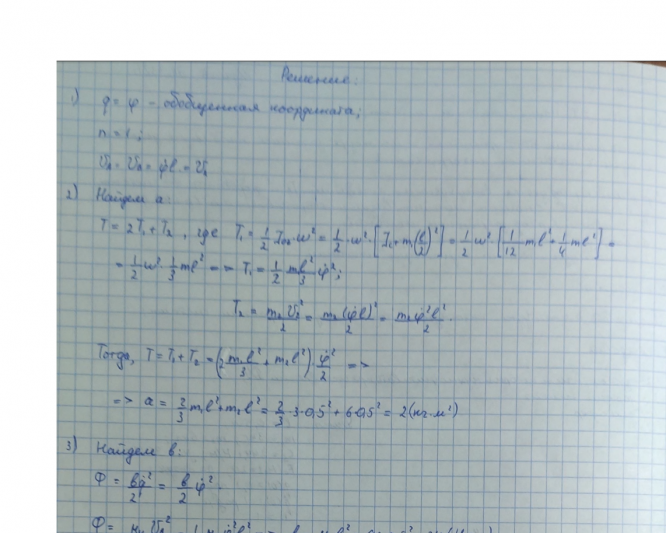 Решение:
1) q = φ – обобщенная координата;
n = 1;
V_A = V_B = φ̇l = V_2
2) Найдем a:
T = 2T₁ + T₂, где T₁ = 1/2 I_OA · ω² = 1/2 · ω² · [I₁ + m(l/2)²] = 1/2 ω² [1/12 ml² + 1/4 ml²] =
= 1/2 ω² · 1/3 ml² => T₁ = 1/2 ml²/3 φ̇²;
T₂ = m₂V₂²/2 = m₂(φ̇l)²/2 = m₂φ̇²l²/2.
Тогда, T = T₁ + T₂ = (2 m₁l²/3 + m₂l²) · φ̇²/2 =>
=> a = 2/3 m₁l² + m₂l² = 2/3 · 3 · 0,5² + 6 · 0,5² = 2 (кг·м²)
3) Найдем b:
Φ = bq̇²/2 = b/2 φ̇².
Φ =